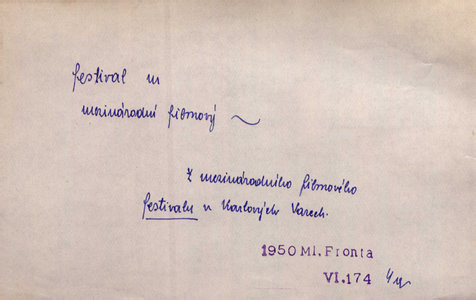 festival m
mezinárodní filmový ~
Z mezinárodního filmového
festivalu v Karlových Varech.
1950 Ml. Fronta
VI.174